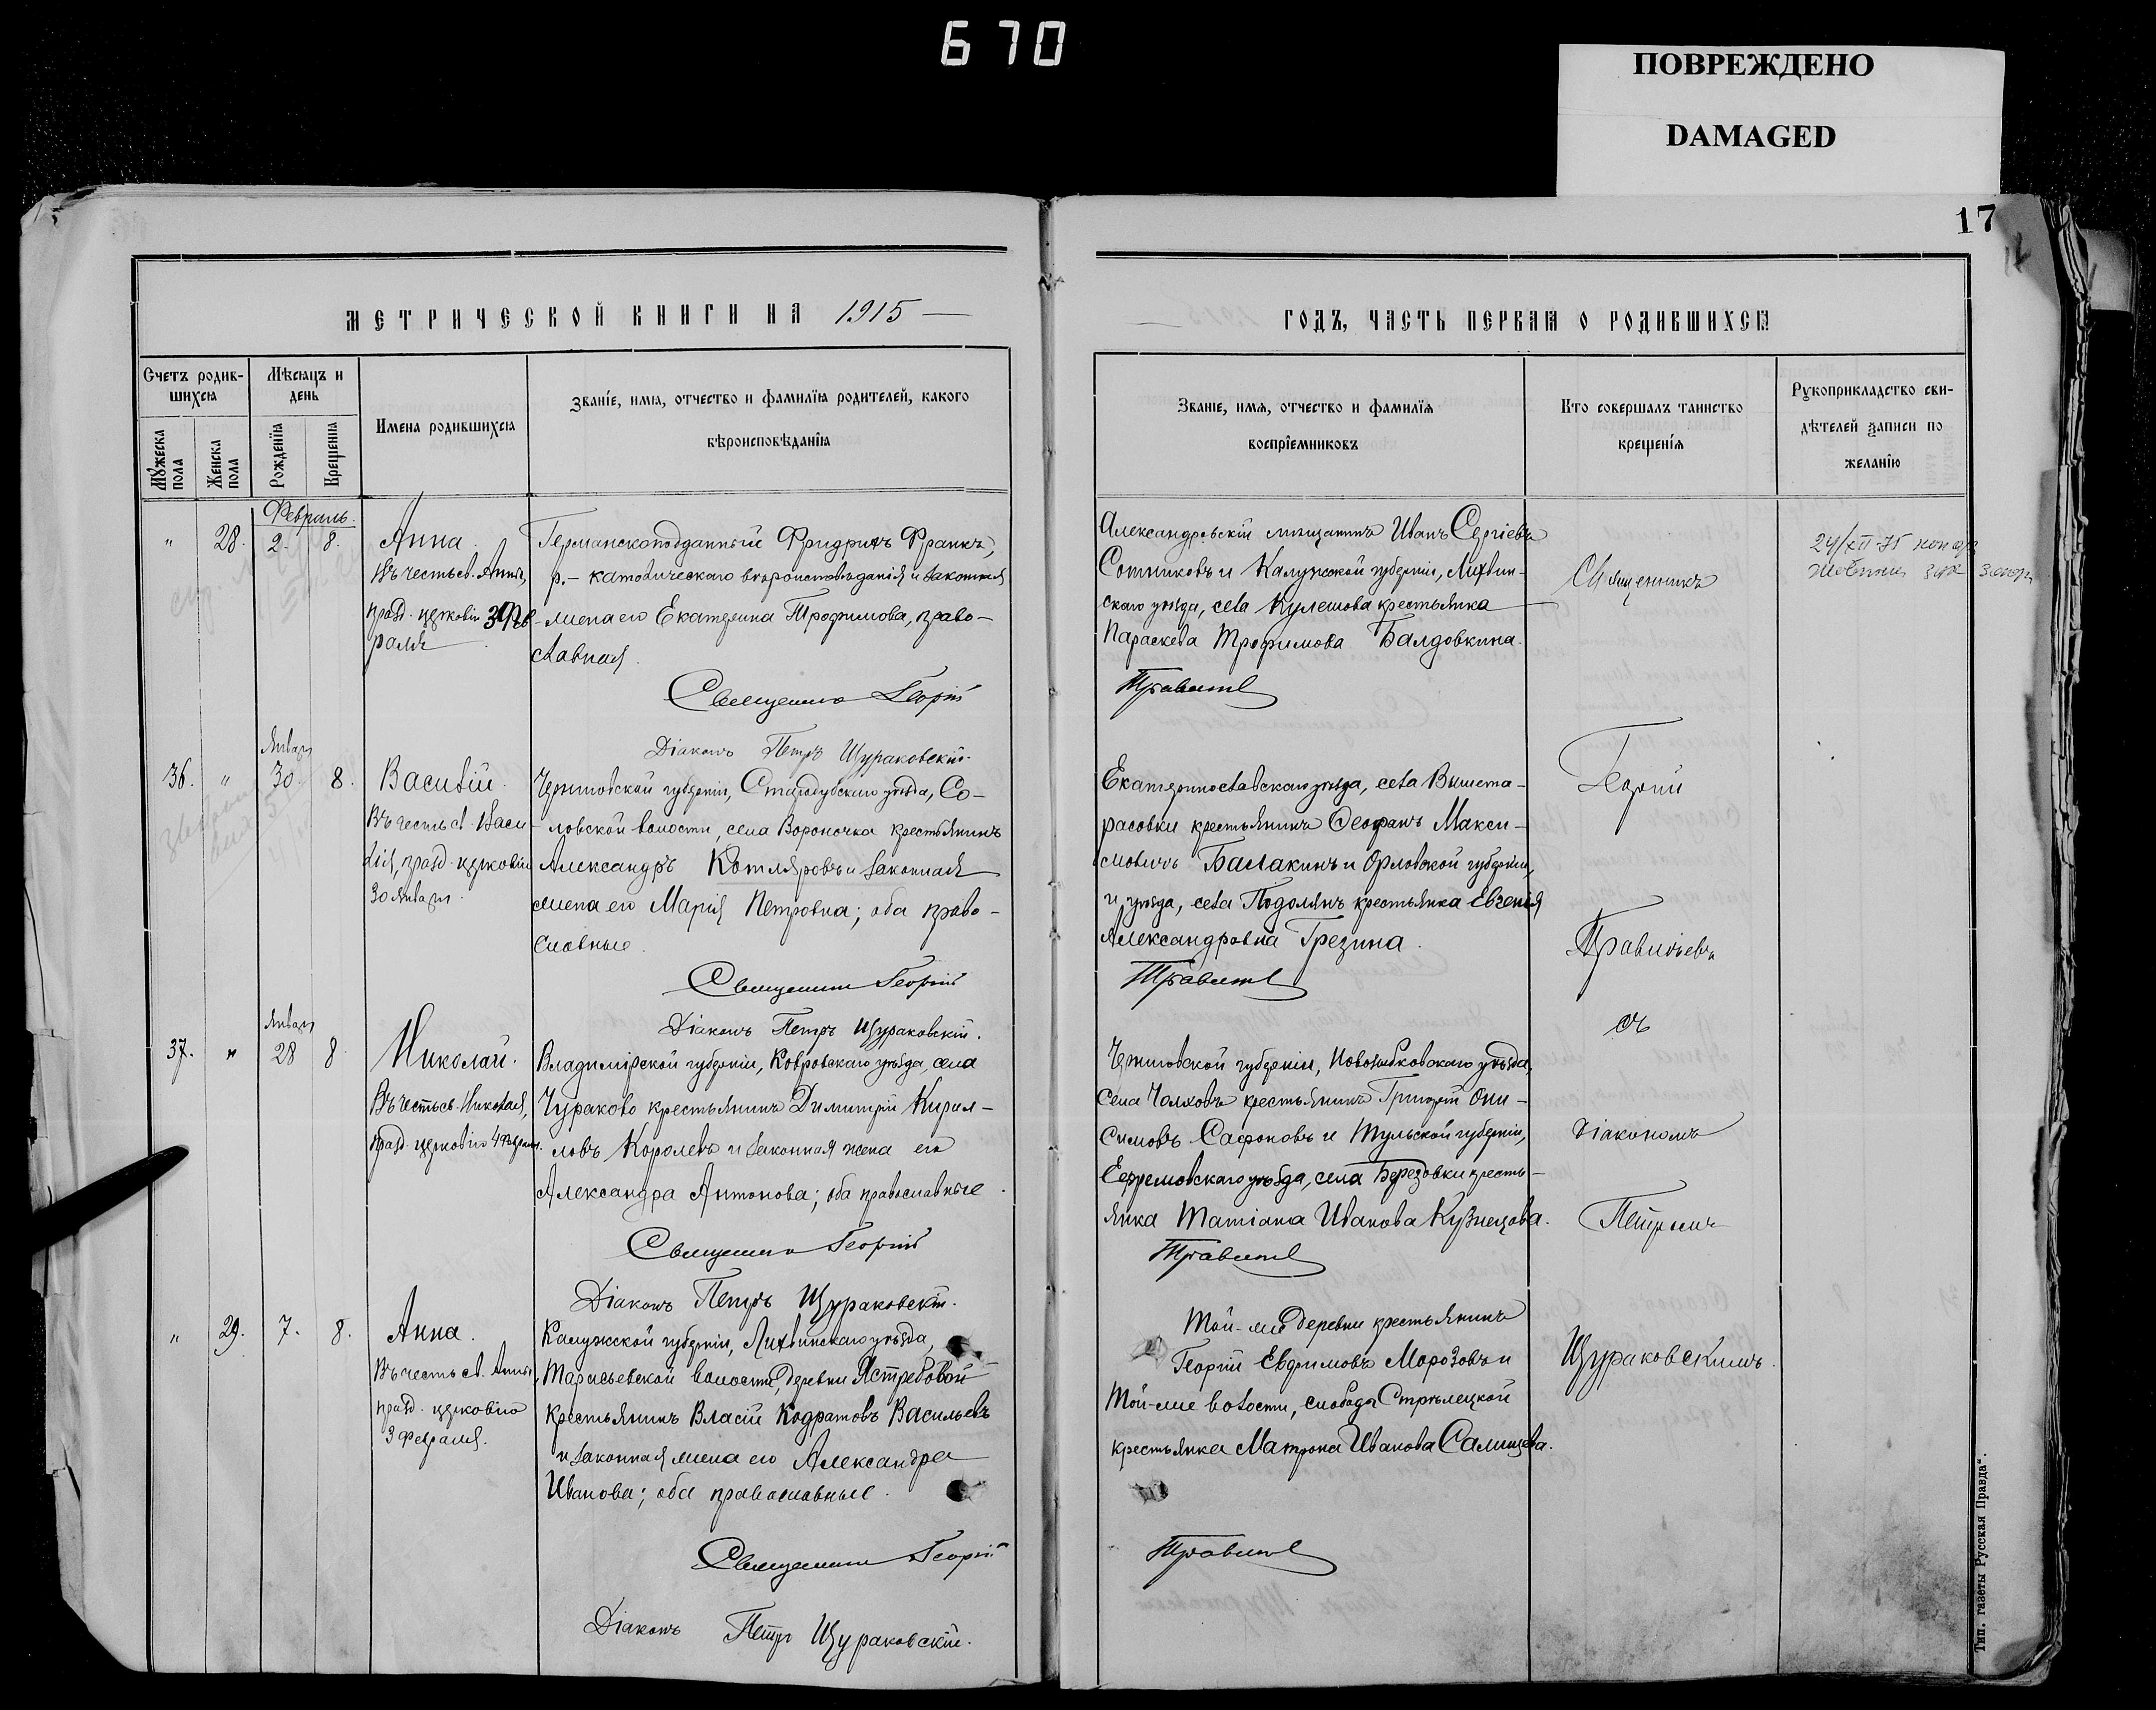 670
ПОВРЕЖДЕНО
DAMAGED
17
МЕТРИЧЕСКОЙ КНИГИ НА 1915
ГОДЪ, ЧАСТЬ ПЕРВАЯ О РОДИВШИХСЯ
Счетъ родив-
шихся
Мѣсяцъ и
день
Мужеска
пола
Женска
пола
Рожденія
Крещенія
Имена родившихся
Званіе, имя, отчество и фамилія родителей, какого
вѣроисповѣданія
Званіе, имя, отчество и фамилія
воспріемниковъ
Кто совершалъ таинство
крещенія
Рукоприкладство сви-
дѣтелей записи по
желанію
Февраль.
" 28. 2. 8.
Анна.
Въ честь св. Анны,
празд. церковію 3 Фев-
раля
Германскоподданный Фридрихъ Франкъ,
р.-католическаго вѣроисповѣданія и законная
жена его Екатерина Трофимова, право-
славная.
Священникъ Георгій
Діаконъ Петръ Щураковскій.
Александровскій мѣщанинъ Иванъ Сергіевъ
Сотниковъ и Калужской губерніи, Лихвин-
скаго уѣзда, села Кулешова крестьянка
Параскева Трофимова Балдовкина.
Правитъ
24/XII 75
Январь
36. " 30. 8.
Василій.
Въ честь св. Васи-
лія, празд. церковію
30 Января.
Черниговской губерніи, Стародубскаго уѣзда, Со-
ловской волости, села Вороночка крестьянинъ
Александръ Котляровъ и законная
жена его Марія Петровна; оба право-
славные.
Священникъ Георгій
Діаконъ Петръ Щураковскій.
Екатеринославскаго уѣзда, села Вышета-
расовки крестьянинъ Ѳеофанъ Макси-
мовичъ Балакинъ и Орловской губерніи,
и уѣзда, села Подолянъ крестьянка Евгенія
Александровна Грезина.
Январь
37. " 28 8
Николай.
Въ честь св. Николая,
празд. церковію 4 Февраля.
Владимірской губерніи, Ковровскаго уѣзда, села
Чураково крестьянинъ Димитрій Кирил-
ловъ Королевъ и законная жена его
Александра Антонова; оба православные.
Священникъ Георгій
Діаконъ Петръ Щураковскій.
Черниговской губерніи, Новозыбковскаго уѣзда,
села Чолховъ крестьянинъ Григорій Они-
симовъ Сафоновъ и Тульской губерніи,
Ефремовскаго уѣзда, села Березовки кресть-
янка Татіана Иванова Кузнецова.
" 29. 7. 8.
Анна.
Въ честь св. Анны,
празд. церковію
3 Февраля.
Калужской губерніи, Лихвинскаго уѣзда,
волости, деревни Ястребовой
крестьянинъ Власій Кодратовъ Васильевъ
и законная жена его Александра
Иванова; оба православные.
Священникъ Георгій
Діаконъ Петръ Щураковскій.
Той-же деревни крестьянинъ
Георгій Евфимовъ Морозовъ и
Той-же волости, слобода Стрѣлецкой
крестьянка Матрона Иванова Салищева.
Священникъ
Георгій
съ
діакономъ
Петромъ
Щураковскимъ.
Тип. газеты Русская Правда".